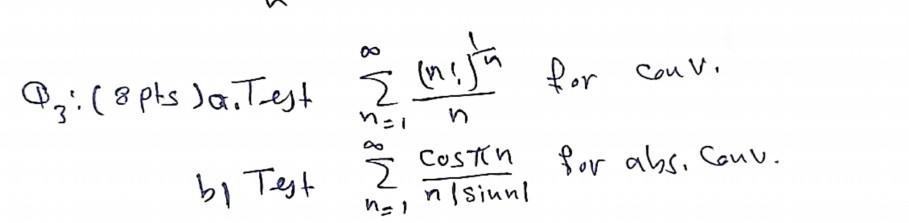 Q₃: (8 pts) a. Test ∑_{n=1}^{∞} (n!)^{1/n} / n for conv.
b) Test ∑_{n=1}^{∞} cosπn / n|sinn| for abs. Conv.